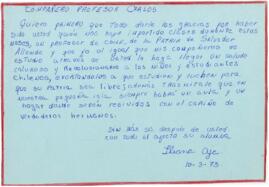 COMPAÑERO PROFESOR CARLOS
QUIERO PRIMERO QUE TODO DARLE LAS GRACIAS POR HABER
SIDO USTED QUIEN NOS HAYA IMPARTIDO CLASES DURANTE ESTOS
MESES, UN PROFESOR DE CHILE, DE LA PATRIA DE SALVADOR
ALLENDE Y QUE YO AL IGUAL QUE MIS COMPAÑEROS DE
ESTUDIO ATRAVES DE USTED LE HAGA LLEGAR UN SALUDO
CALUROSO Y REVOLUCIONARIO A LOS NIÑOS Y ESTUDIANTES
CHILENOS, EXORTANDOLOS A QUE ESTUDIEN Y LUCHEN PARA
QUE SU PATRIA SEA LIBRE; ADEMAS TRASMITALE QUE EN
NUESTRA PEQUEÑA ISLA SIEMPRE HABRA UN
HOGAR DONDE SERAN RECIBIDOS CON EL CARIÑO DE
VERDADEROS HERMANOS.
SIN MAS SE DESPIDE DE USTED
CON TODO EL AFECTO SU ALUMNA
10-3-75.